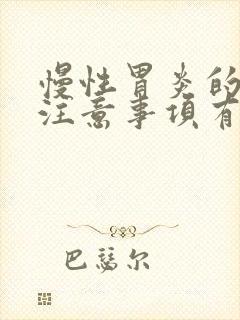 慢性胃炎的
注意事项有
巴瑟尔